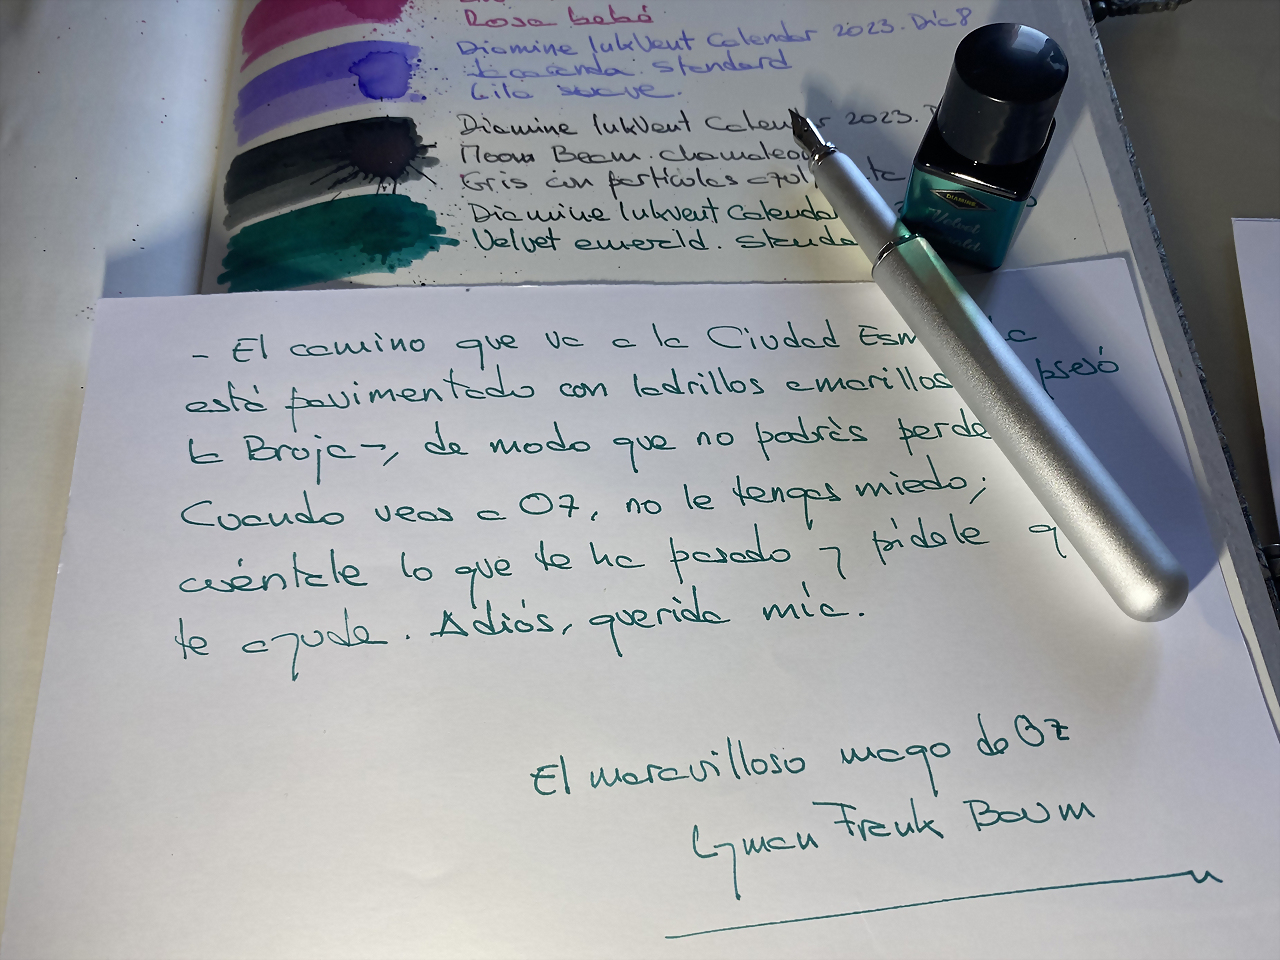 Rosa bebé
Diamine InkVent Calendar 2023. Día 8
Jacaranda. Standard
Lila suave.
Diamine InkVent Calendar 2023.
Moon Beam. Chamaleon
Gris con partículas
Diamine InkVent Calendar
Velvet emerald.
DIAMINE
Velvet
- El camino que va a la Ciudad
está pavimentado con ladrillos amarillos
la Bruja-, de modo que no podrás
Cuando veas a Oz, no le tengas miedo;
cuéntale lo que te ha pasado y pídele
te ayude. Adiós, querida mía.
El maravilloso mago de Oz
Lyman Frank Baum